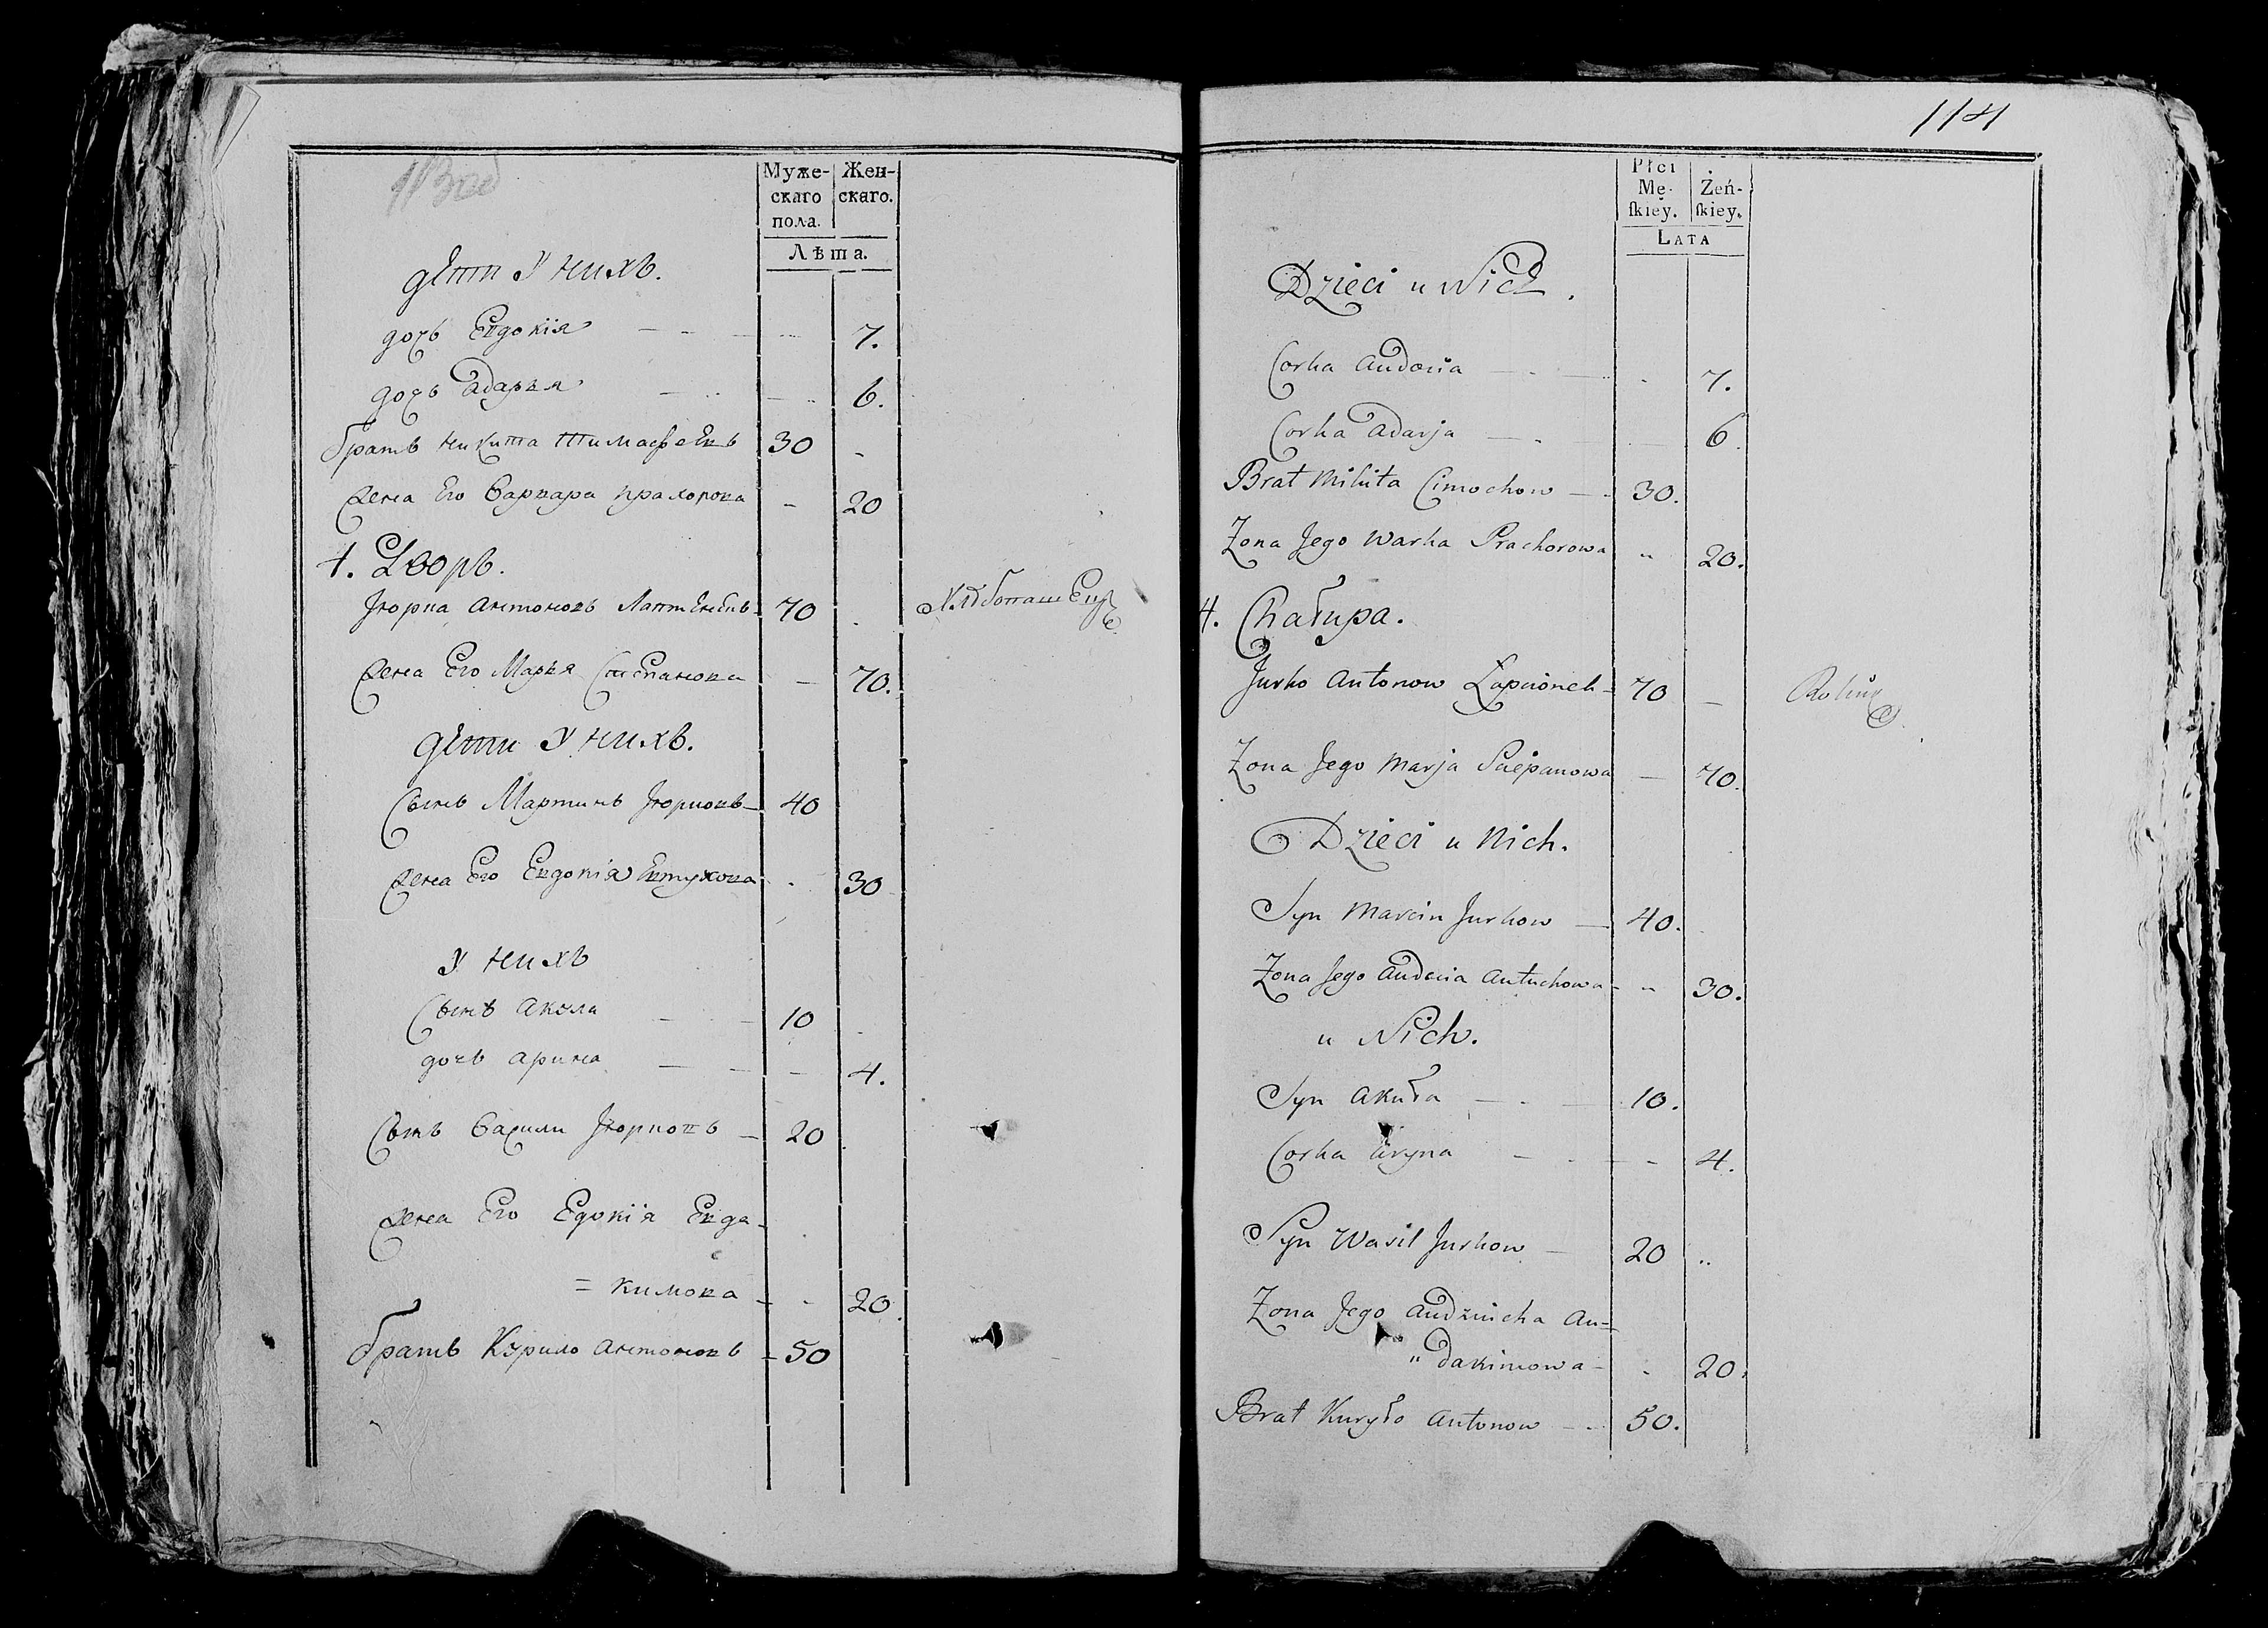 Муже-
скаго
пола.
Жен-
скаго.
Лѣта.
дети У нихъ.
дочь Евдокія 7.
дочь адарья 6.
братъ никита тимафеевъ 30
жена Его варвара прахорова 20
4. Дворъ.
Юрка антоновъ Лаптенокъ 70 Хлѣбопашецъ
жена Его Марья Степанова 70.
дети У нихъ.
Сынъ Мартинъ Юрковъ 40
жена Его Евдокія Евтухова 30
У нихъ
Сынъ акула 10
дочь арина 4.
Сынъ васили Юрковъ 20
жена Его Едокія Евда-
= кимова 20.
братъ Курило антоновъ 50
114
Płci
Mę-
ſkiey.
Żeń-
ſkiey.
Lata
Dzieci u Nich.
Corka Audocia 7.
Corka adarja 6.
Brat Mikita Cimochow 30.
Zona Jego Warka Prachorowa 20.
4. Chałupa.
Jurko Antonow Łapcionek 70 Rolnik
Zona Jego Marja Sciepanowa 70.
Dzieci u Nich.
Syn Marcin Jurkow 40.
Zona Jego Audocia Autuchowa 30.
u Nich.
Syn Akuła 10.
Corka Aryna 4.
Syn Wasil Jurkow 20
Zona Jego Audziucha Au=
" dakimowa 20.
Brat Kuryło Antonow 50.